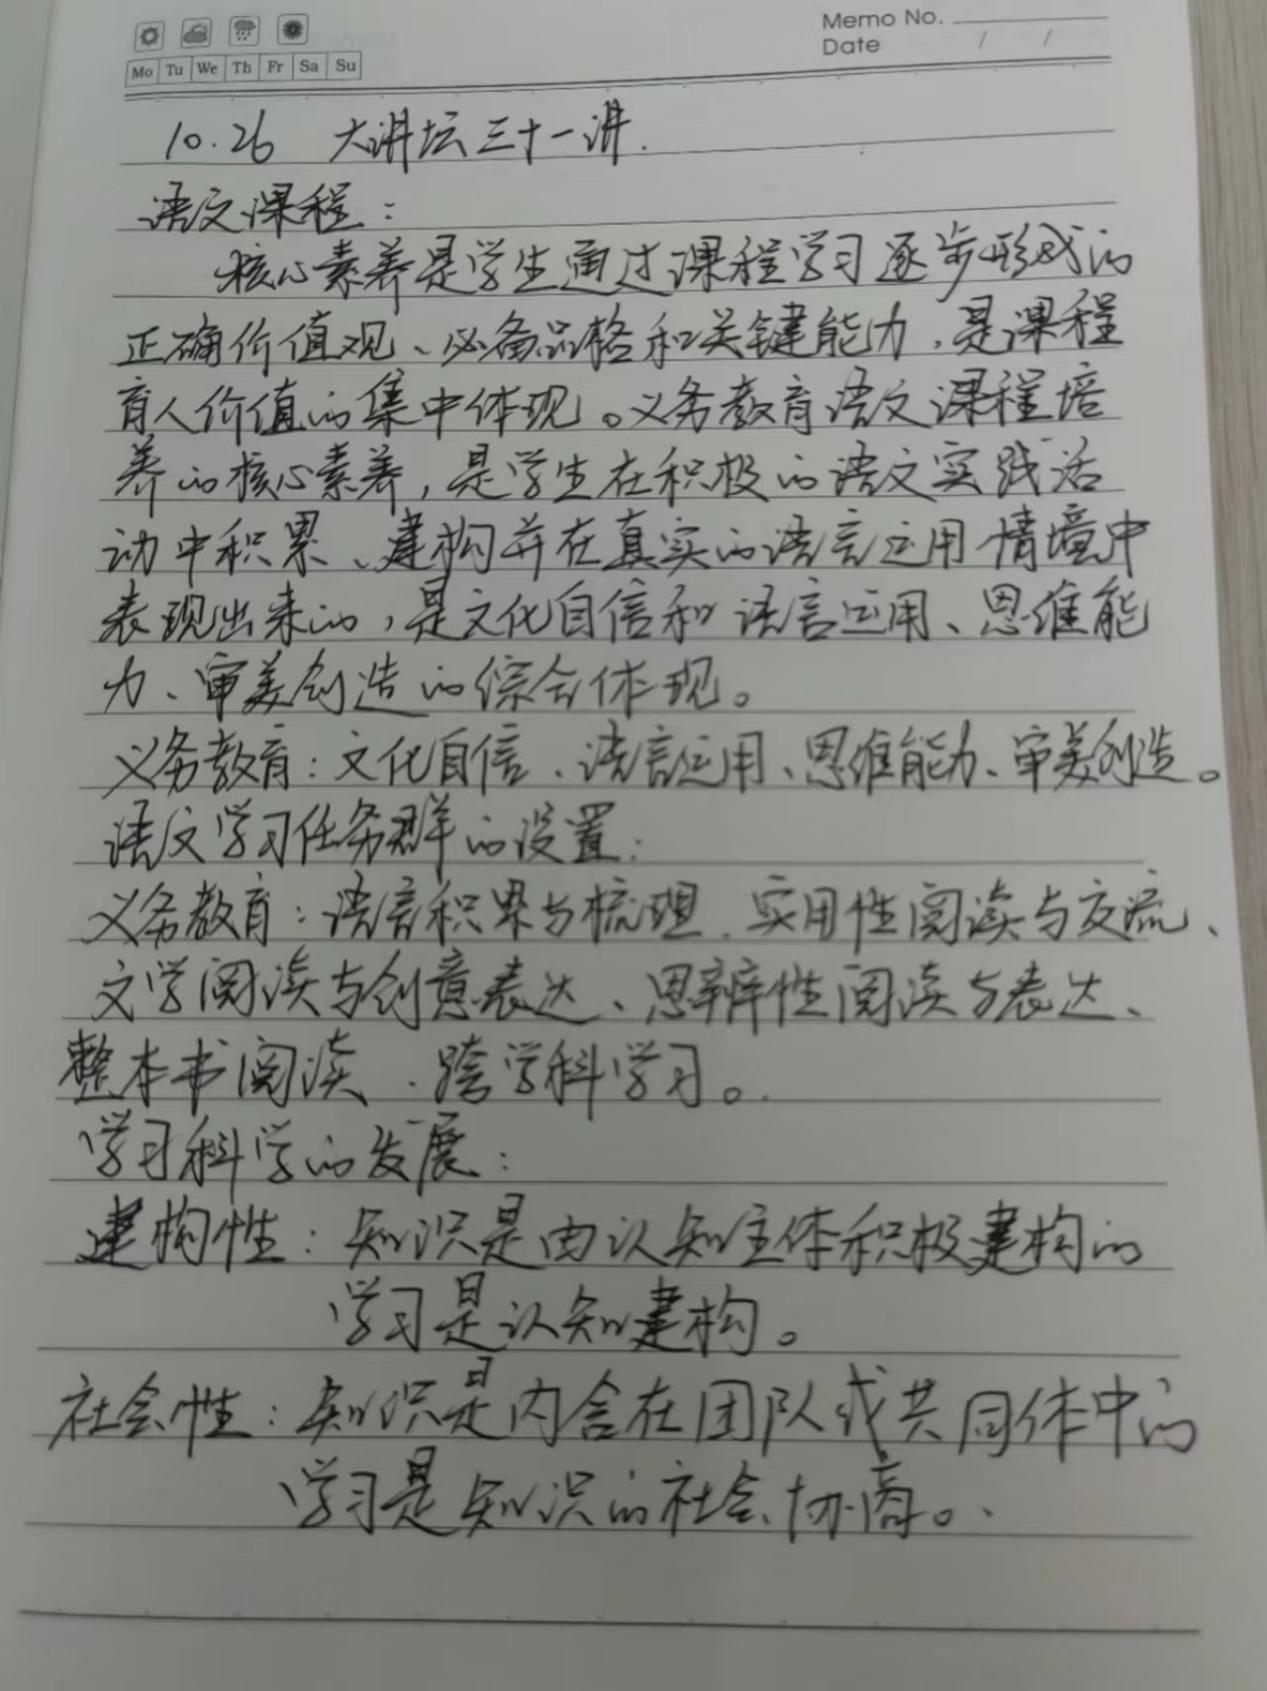 Memo No.
Date / /
Mo Tu We Th Fr Sa Su
10.26 大讲坛三十一讲.
语文课程：
核心素养是学生通过课程学习逐步形成的
正确价值观、必备品格和关键能力，是课程
育人价值的集中体现。义务教育语文课程培
养的核心素养，是学生在积极的语文实践活
动中积累、建构并在真实的语言运用情境中
表现出来的，是文化自信和语言运用、思维能
力、审美创造的综合体现。
义务教育：文化自信、语言运用、思维能力、审美创造。
语文学习任务群的设置：
义务教育：语言积累与梳理、实用性阅读与交流、
文学阅读与创意表达、思辨性阅读与表达、
整本书阅读、跨学科学习。
学习科学的发展：
建构性：知识是由认知主体积极建构的
学习是认知建构。
社会性：知识是内含在团队或共同体中的
学习是知识的社会协商。